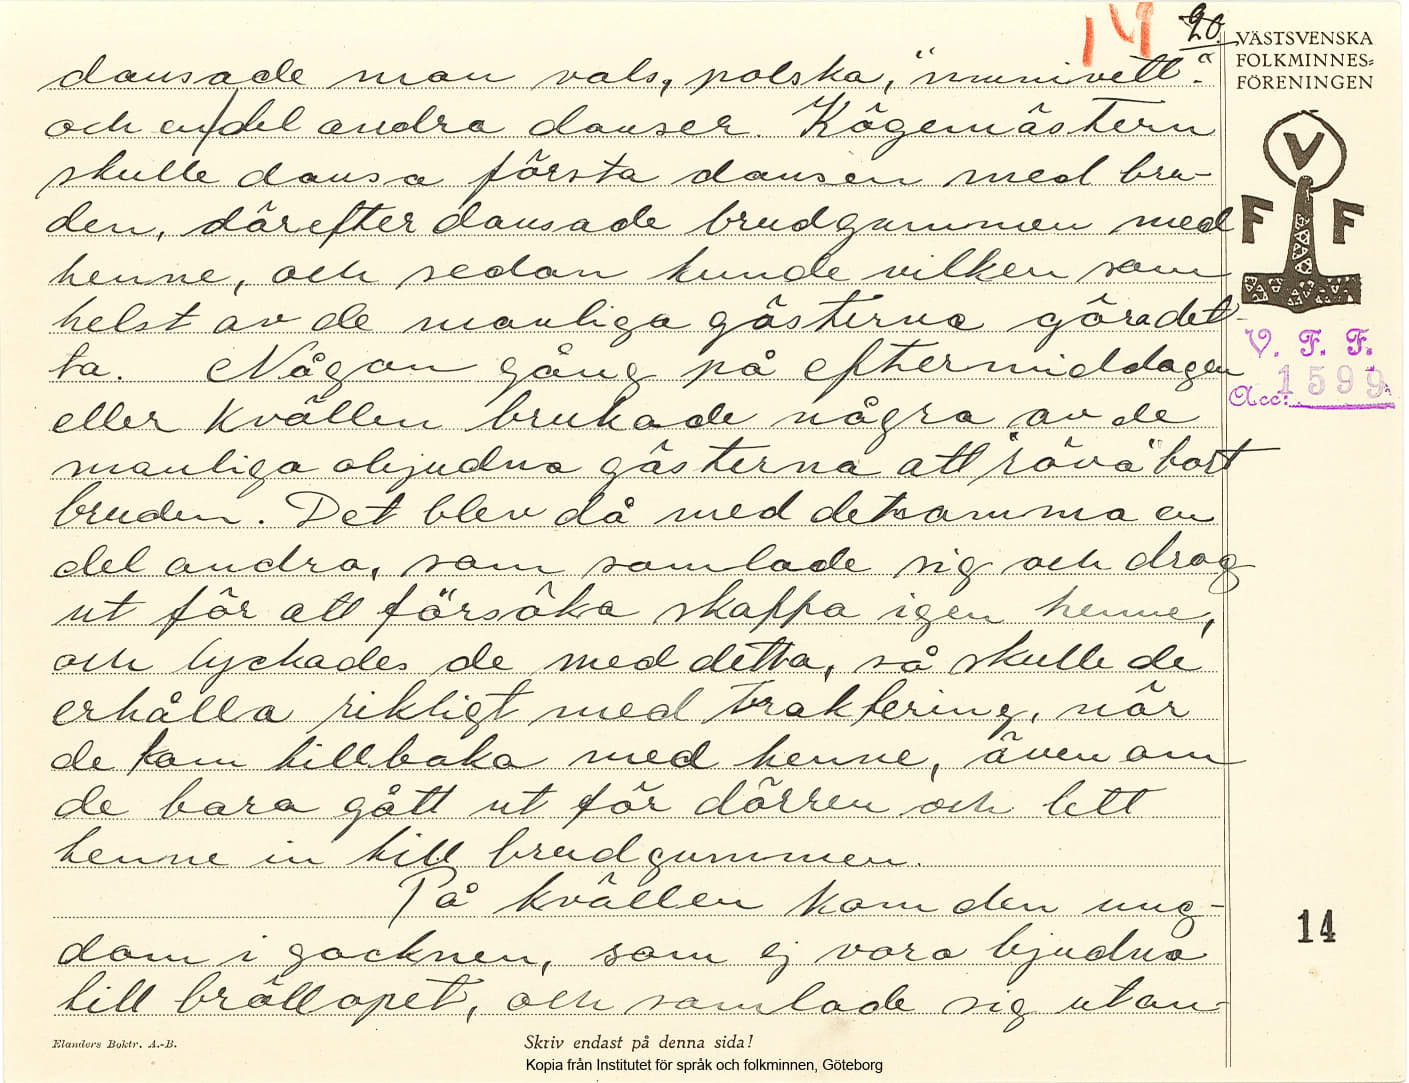 14 20.
VÄSTSVENSKA
FOLKMINNES=
FÖRENINGEN
V
F F
V. F. F.
Acc: 1599
dansade man vals, polska, "munivett"
och en del andra danser. Kögemästern
skulle dansa första dansen med bru-
den, därefter dansade brudgummen med
henne, och sedan kunde vilken som
helst av de manliga gästerna göra det-
ta. Någon gång på eftermiddagen
eller kvällen brukade några av de
manliga objudna gästerna att "röva" bort
bruden. Det blev då med detsamma en
del andra, som samlade sig och drog
ut för att försöka skaffa igen henne,
och lyckades de med detta, så skulle de
erhålla rikligt med traktering, när
de kom tillbaka med henne, även om
de bara gått ut för dörren och lett
henne in till brudgummen.
På kvällen kom den ung-
dom i socknen, som ej voro bjudna
till bröllopet, och samlade sig utan-
14
Elanders Boktr. A.-B.
Skriv endast på denna sida!
Kopia från Institutet för språk och folkminnen, Göteborg